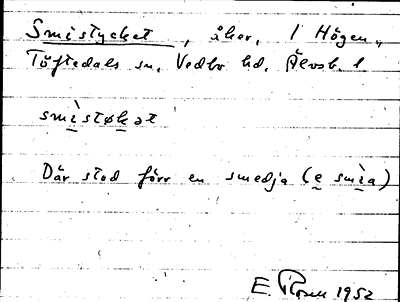 Smistycket, åker, 1 Högen,
Töftedals sn. Vedbo hd. Älvsb. l
smìstykət
Där stod förr en smedja (e smìa)
E. 1952